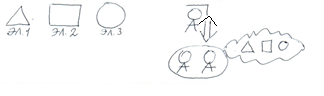 Эл.1 Эл.2 Эл.3